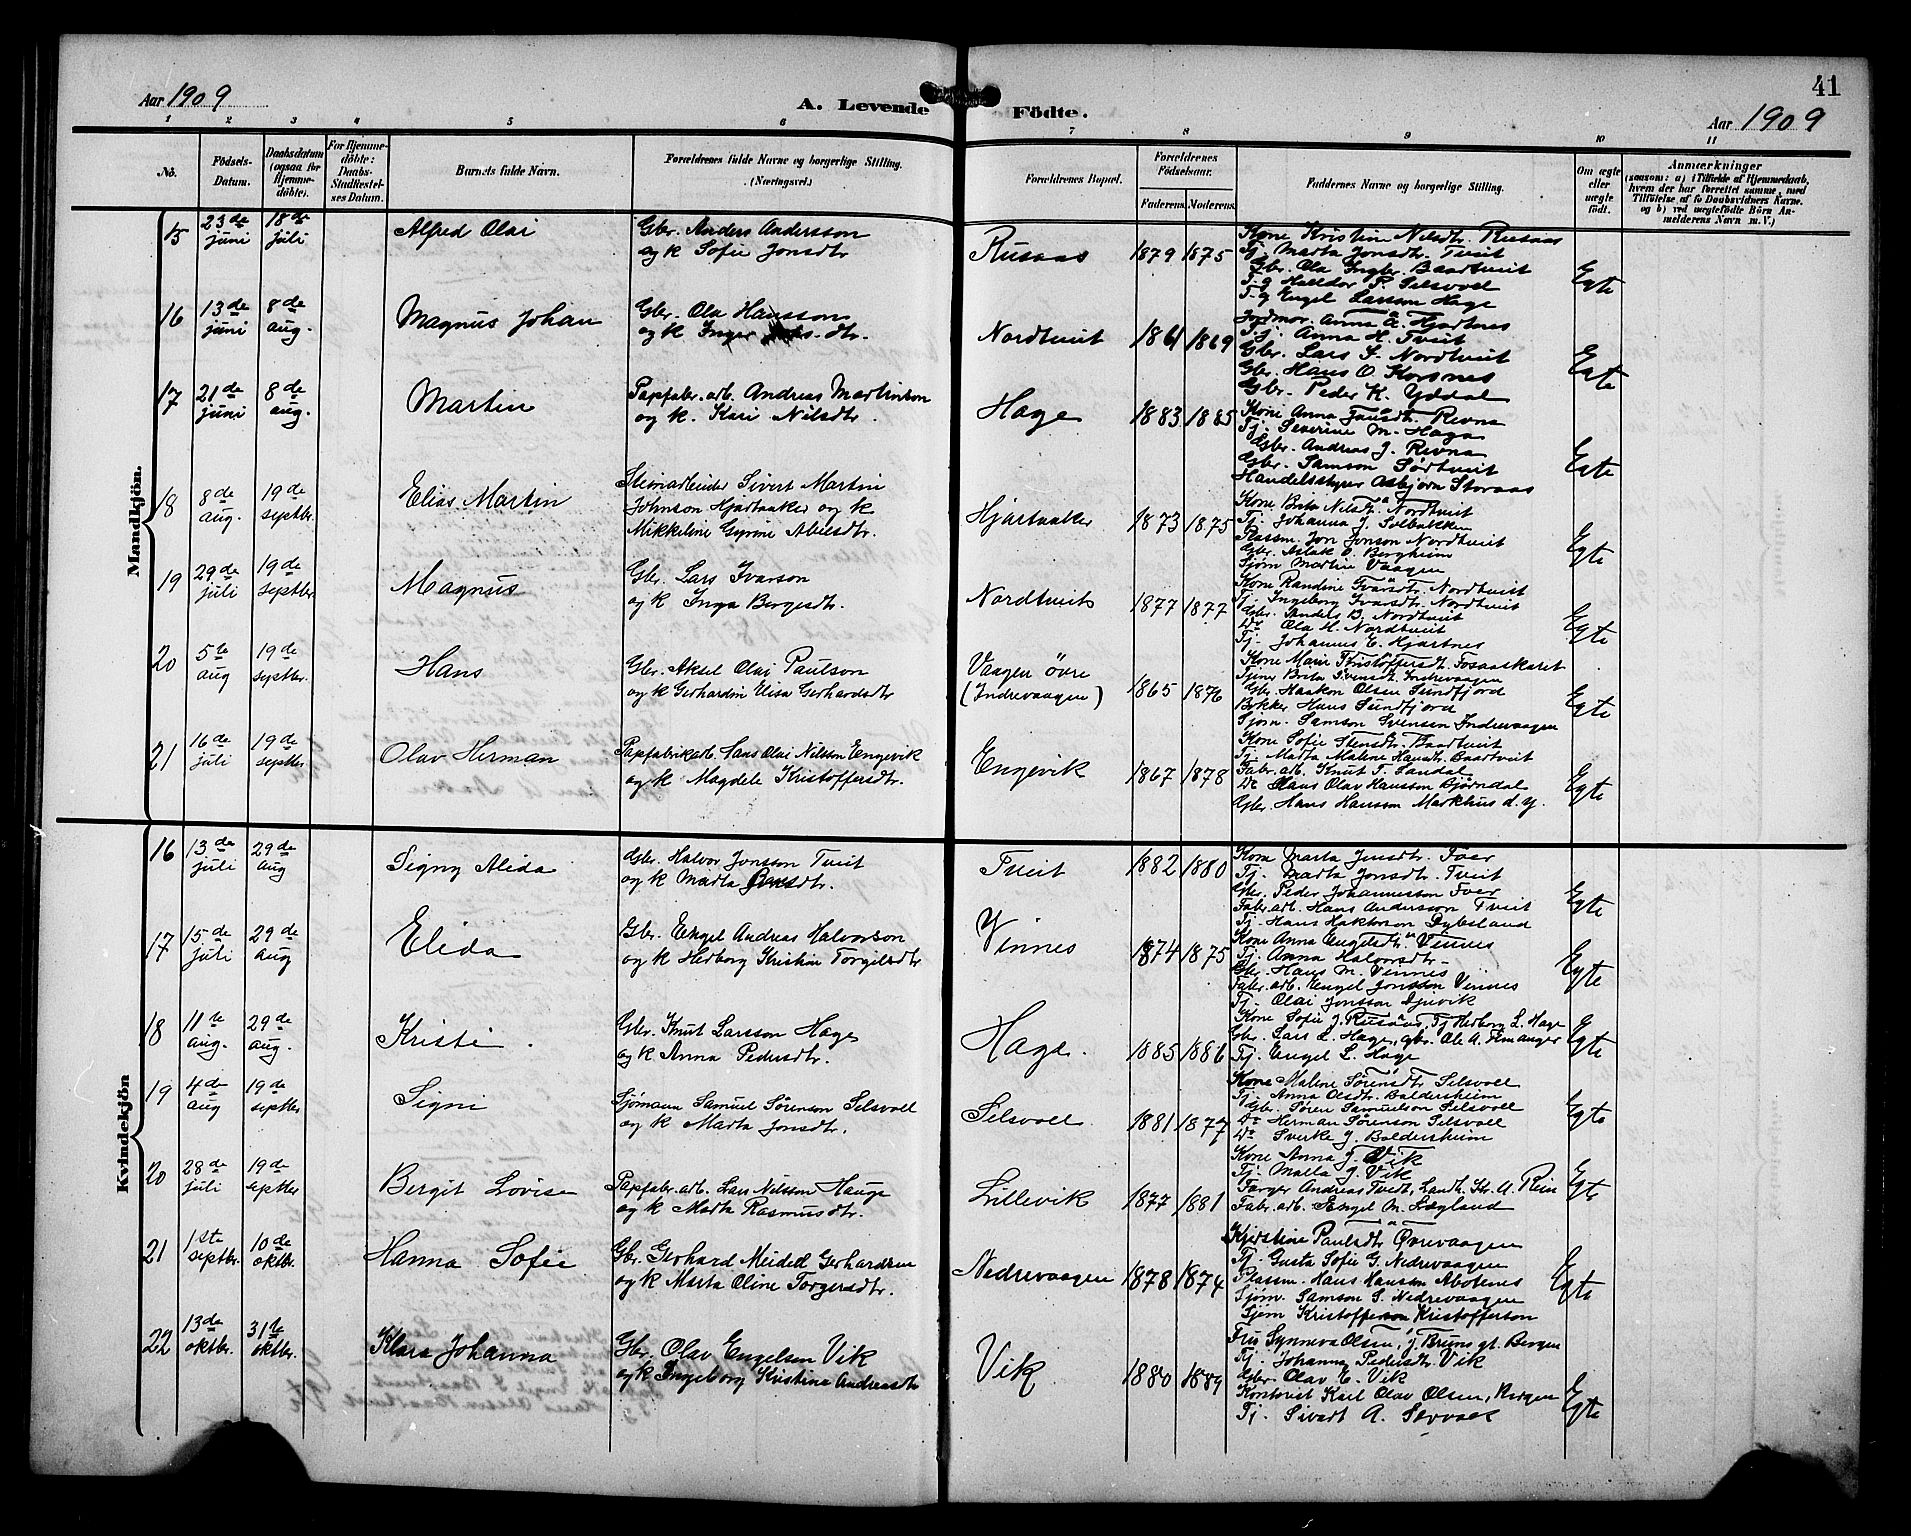 41
Aar 1909
A. Levende Födte.
Aar 1909
1 2 3 4 5 6 7 8 9 10 11
No.
Födsels-Datum.
Daabsdatum (ogsaa for Hjemme-döbte).
For Hjemme-döbte: Daabs-Stadfæstel-ses Datum.
Barnets fulde Navn.
Forældrenes fulde Navne og borgerlige Stilling. (Næringsvei.)
Forældrenes Bopæl.
Forældrenes Födselsaar.
Faderens. Moderens.
Faddernes Navne og borgerlige Stilling.
Om ægte eller uægte født.
Anmærkninger
(saasom: a) i Tilfælde af Hjemmedaab, hvem der har forrettet samme, med Tilföielse af to Daabsvidners Navne, og b) ved uægtefödte Börn An-melderens Navn m. V.)
Mandkjön.
15 23de juni 18de juli Alfred Olai
Gbr. Anders Andersson
og k Sofie Jonsdtr
Rusaas 1879 1875
Kone Kristin Nilsdtr. Rusaas
Tj. Marta Jonsdtr. Tveit
Gbr. Ola Ingbr. Baadtveit
T. g Halldor P. Selsvoll
T. g Engel Larsson Hage
Egte
16 13de juni 8de aug. Magnus Johan
Gbr. Ola Hansson
og k. Inger dtr.
Nordtveit 1861 1869
Jordmor. Anna A. Hjartnes
Tj. Anna H. Tveit
Gbr. Lars S. Nordtveit
Gbr. Hans O. Korsnes
Gbr. Peder K. Yddal
Egte
17 21de juni 8de aug. Martin
Papfabr. arb. Andreas Martinson
og k. Kari Nilsdtr.
Hage 1883 1885
Kone Anna Revne
Tj. Severine M. Haga
Gbr. Andreas J. Revna
Gbr. Samson Sørtveit
Handelsstyrer Asbjørn Storaas
Egte
18 8de aug. 19de septbr. Elias Martin
Stenarbeider Sivert Martin
Johnson Hjartaaker og k
Mikkeline Gurine Abelsdtr.
Hjartaaker 1873 1875
Kone Brita Nilsdtr. Nordtveit
Tj. Johanna J. Solbakken
Plassm. Jon Jonson Nordtveit
Gbr. Aslak O. Bergheim
Sjøm Martin Vaagen
Egte
19 29de juli 19de septbr Magnus
Gbr. Lars Ivarson
og k Inga Bergesdtr.
Nordtveit 1877 1877
Kone Randine Ivarsdtr. Nordtveit
Tj. Ingeborg Ivarsdtr. Nordtveit
Gbr. Anders B. Nordtveit
Do Ola H. Nordtveit
Tj. Johannes E. Hjartnes
Egte
20 5te aug 19de septbr. Hans
Gbr. Aksel Olai Paulson
og k Gerhardine Elisa Gerhardsdtr
Vaagen övre
(Indrevaagen)
1865 1876
Kone Marie Kristoffersdt. Fosaaskaret
Tjener Brita Svensdt. Indrevaagen
Gbr. Haakon Olsen Sundfjord
Bøkker Hans Sundfjord
Sjøm. Samson Svensen Indrevaagen
Egte
21 16de juli 19de septbr Olav Herman
Papfabrikarb. Hans Olai Nilsson Engevik
og k. Magdele Kristoffersdtr.
Engevik 1867 1878
Kone Sofie Stensdtr. Baadtveit
Tj. Marta Maline Hansdtr. Baadtveit
Fabr. arb. Knut T. Sandal
Do Claus Olav Hansson Bjørndal
Gbr. Hans Hansson Markhus d. y.
Egte
Kvindekjön
16 13de juli 29de aug Signy Alida
Gbr. Halvor Jonsson Tveit
og k Marta Jonsdtr.
Tveit 1882 1880
Kone Marta Jonsdtr. Foer
Tj. Marta Jonsdtr. Tveit
Gbr. Peder Johannesson Foer
Fabr. arb. Hans Andersson Tveit
Tj. Hans Haktorson Dybsland
Egte
17 15de juli 29de aug Elida
Gbr. Engel Andreas Halvorson
og k Herborg Kristine Torgilsdtr
Vinnes 1874 1875
Kone Anna Engelsdtr. Vinnes
Tj. Anna Halvorsdtr -
Gbr. Hans M. Vinnes
Fabr. arb. Engel Jonsson Vinnes
Tj. Olai Jonsson Djuvik
Egte
18 11te aug. 29de aug. Kristi
Gbr. Knut Larsson Hage
og k Anna Pedersdtr.
Hage 1885 1886
Kone Sofie J. Rusaas, Tj Herborg L. Hage
Gbr. Lars L. Hage, gbr. Ole A. Finanger
Tj. Engel L. Hage
Egte
19 4de aug 19de septbr Signi
Sjømann Samuel Sørenson Selsvoll
og k Marta Jonsdtr.
Selsvoll 1881 1877
Kone Maline Sørensdtr Selsvoll
Tj. Anna Olsdtr. Baldersheim
Gbr. Søren Samuelson Selsvoll
Do Herman Sørenson Selsvoll
Do Sverke J. Baldersheim
Egte
20 28de juli 19de septbr Bergit Lovise
Papfabr. arb. Lars Nilsson Hauge
og k Marta Rasmusdtr.
Lillevik 1877 1881
Kone Anna J. Vik
Tj. Malla J. Vik
Farger Andreas Tvedt, Landh. Kr. A. Rein
Fabr. arb. Engel M. Lægland
Egte
21 1ste septbr. 10de oktbr. Hanna Sofie
Gbr. Gerhard Meidel Gerhardson
og k Marta Oline Torgersdtr.
Nedrevaagen 1878 1874
Kjerstine Paulsdtr Øvrevaagen
Tj. Gusta Sofie G. Nedrevaagen
Plassm. Hans Hansson Abotenes
Sjøm. Samson S. Nedrevaagen
Sjøm Kristofferson Kristofferson
Egte
22 13de oktbr. 31te oktbr. Klara Johanna
Gbr. Olav Engelsen Vik
og k Ingeborg Kristine Andreasdtr
Vik 1880 1889
Fru Synneva Olsen, J. Bruns gt. Bergen
Tj. Johanna Pedersdtr. Vik
Gbr. Olav E. Vik
Kontorist Karl Olav Olsen, Bergen
Tj. Sivert A. Sævoll
Egte